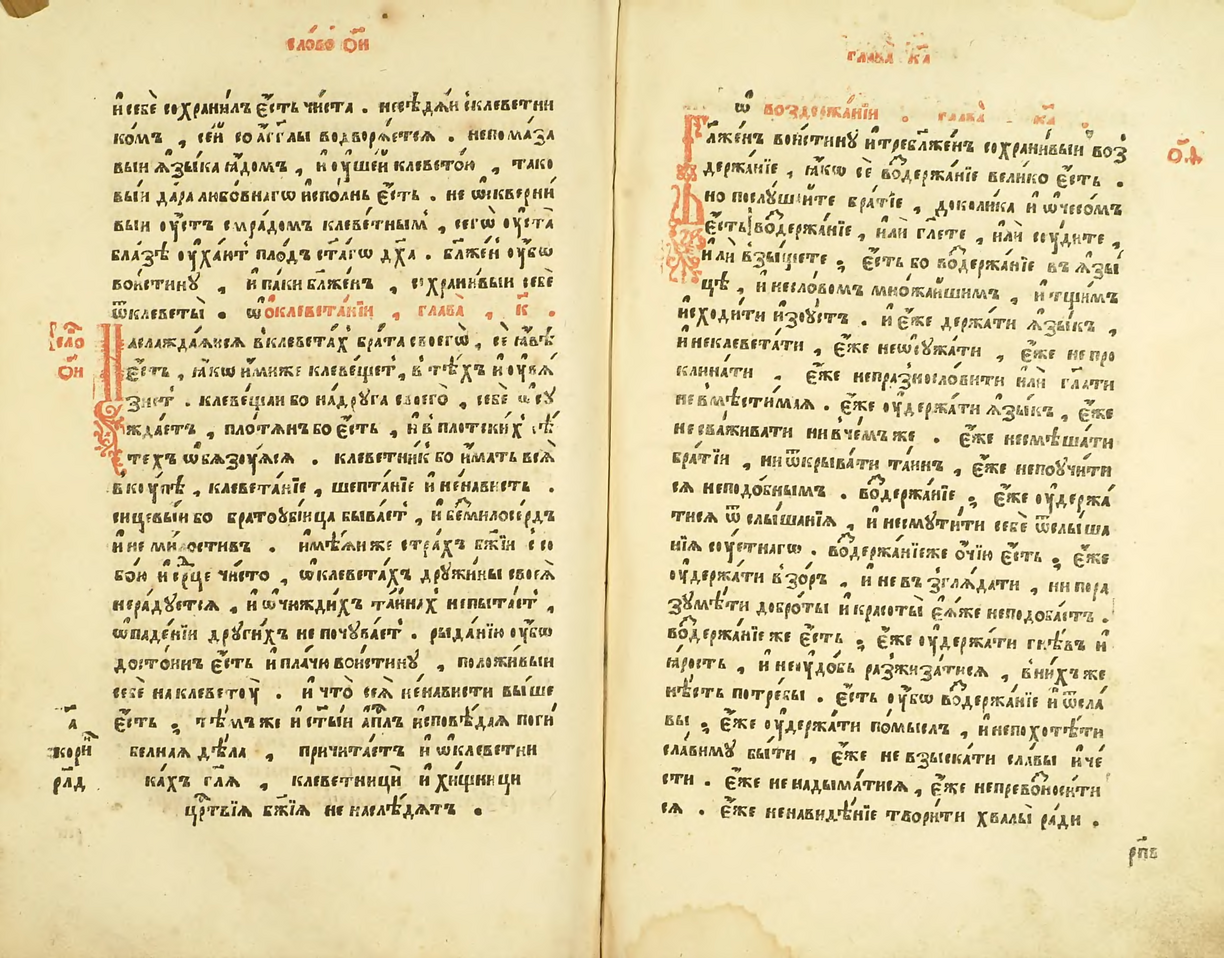 сло́во о҃и
и҆ себѐ сохрани́лъ є҆́сть чи́ста . несѣдѧ́й с клеветни
ко́мъ , се́й со а҆́гг҃лы водворѧ́етсѧ . непома́за
вый ѧ҆зы́ка ꙗ҆́домъ , и҆ ᲂу҆ше́й клевето́ю , тако
вы́й да́ра любо́внагѡ и҆спо́лнь є҆́сть . не ѡ҆скверни́
вый ᲂу҆́стъ смра́домъ клеве́тнымъ , сегѡ̀ ᲂу҆ста̀
бла́зѣ ᲂу҆ха́ютъ пло́дъ ст҃а́гѡ дх҃а . бл҃же́нъ ᲂу҆́бѡ
вои́стину , и҆ па́ки бл҃же́нъ , сохрани́вый себѐ
ѿ клеветы̀ . ѡ҆ ѡ҆клевета́нїи , глава̀ , к҃ .
сло́
о҃и
Наслажда́ѧйсѧ в клевета́хъ бра́та своегѡ̀ , се ꙗ҆́вѣ
є҆́сть , ꙗ҆́кѡ и҆́миже клеве́щетъ , в тѣ́хъ и҆ ᲂу҆вѧ
зне́тъ . клевеща́й бо на дру́га своего̀ , себѐ ѡ҆су
жда́етъ , пло́тѧнъ бо є҆́сть , и҆ в пло́тскихъ сѣ́
техъ ѡ҆бѧзᲂу́ѧсѧ . клеветни́къ бо и҆́мать всѧ̀
вкᲂу́пѣ , клевета́нїе , шепта́нїе и҆ не́нависть .
сицевы́й бо братоубі́йца быва́етъ , и҆ безмилосе́рдъ
и҆ не ми́лостивъ . и҆мѣ́ѧй же стра́хъ бж҃їй с со
бо́ю и҆ се́рце чи́сто , ѡ҆ клевета́хъ дрꙋжи́ны своеѧ̀
нера́дуетсѧ , и҆ ѡ҆ чꙋжди́хъ та́йнахъ неиспыта́етъ ,
ѡ҆ паде́нїи дрꙋги́хъ не почꙋва́етъ . рыда́нїю ᲂу҆́бѡ
досто́инъ є҆́сть и҆ пла́чю вои́стину , положи́вый
себѐ на клеветᲂу̀ . и҆ что̀ сеѧ̀ не́нависти вы́ше
є҆́сть ; тѣ́мъ же и҆ ст҃ы́й а҆пⷭ҇лъ и҆сповѣ́даѧ поги́
белнаѧ дѣ́ла , причита́етъ и҆ ѡ҆ клеветни
ка́хъ гл҃ѧ , клеветницы̀ и҆ хи́щницы
црⷭ҇твїѧ бж҃їѧ не наслѣ́дѧтъ .
а҃
кори́н
рл҃д
глава̀ к҃а
ѡ҆ воздержа́нїи . глава̀ . к҃а
о҃ѳ
Бл҃же́нъ вои́стину и҆ требл҃же́нъ сохрани́вый воз
держа́нїе , ꙗ҆́кѡ сѐ воздержа́нїе вели́ко є҆́сть .
но послꙋ́шайте бра́тїе , доко́лика и҆ ѡ҆ чесо́мъ
є҆́сть воздержа́нїе , и҆лѝ гл҃ете , и҆лѝ сꙋ́дите ,
и҆лѝ взы́щете ; є҆́сть бо воздержа́нїе въ ѧ҆зы́
цѣ , и҆ несло́вомъ мно́жайшимъ , и҆ тщи́мъ
и҆сходи́ти и҆зоу́стъ . и҆ є҆́же держа́ти ѧ҆зы́къ ,
и҆ неклевета́ти , є҆́же неѡ҆сꙋжа́ти , є҆́же не про
клина́ти , є҆́же непразносло́вити и҆лѝ гл҃ати
невмѣсти́маѧ . є҆́же ᲂу҆держа́ти ѧ҆зы́къ , є҆́же
не сва́живати ни в че́мъ же . є҆́же несмѣша́ти
бра́тїи , ни ѿкрыва́ти та́инъ , є҆́же непоучи́ти
сѧ неподо́бнымъ . воздержа́нїе ; є҆́же ᲂу҆держа́
тисѧ ѿ слы́шанїѧ , и҆ несмꙋти́ти себѐ ѿ слы́ша
нїѧ сꙋ́етнагѡ . воздержа́нїе же о҆́чїю є҆́сть ; є҆́же
ᲂу҆держа́ти взо́ръ , и҆ не въ зглѧ́дати , ни пора
зумѣ́ти добро́ты и҆ красоты̀ є҆ѧ́же неподоба́етъ .
воздержа́нїе же є҆́сть ; є҆́же ᲂу҆держа́ти гнѣ́въ и҆
ꙗ҆́рость , и҆ неᲂу҆до́бь разжиза́тисѧ , в ни́хъ же
нѣ́сть потре́бы . є҆́сть ᲂу҆́бѡ воздержа́нїе и҆ ѿ сла́
вы ; є҆́же ᲂу҆держа́ти по́мыслъ , и҆ непохотѣ́ти
сла́вимꙋ бы́ти , є҆́же не взыска́ти сла́вы и҆ че́
сти . є҆́же не надыма́тисѧ , є҆́же непревозноси́ти
сѧ . є҆́же ненави́дѣнїе твори́ти хвалы̀ ра́ди .
рп҃в